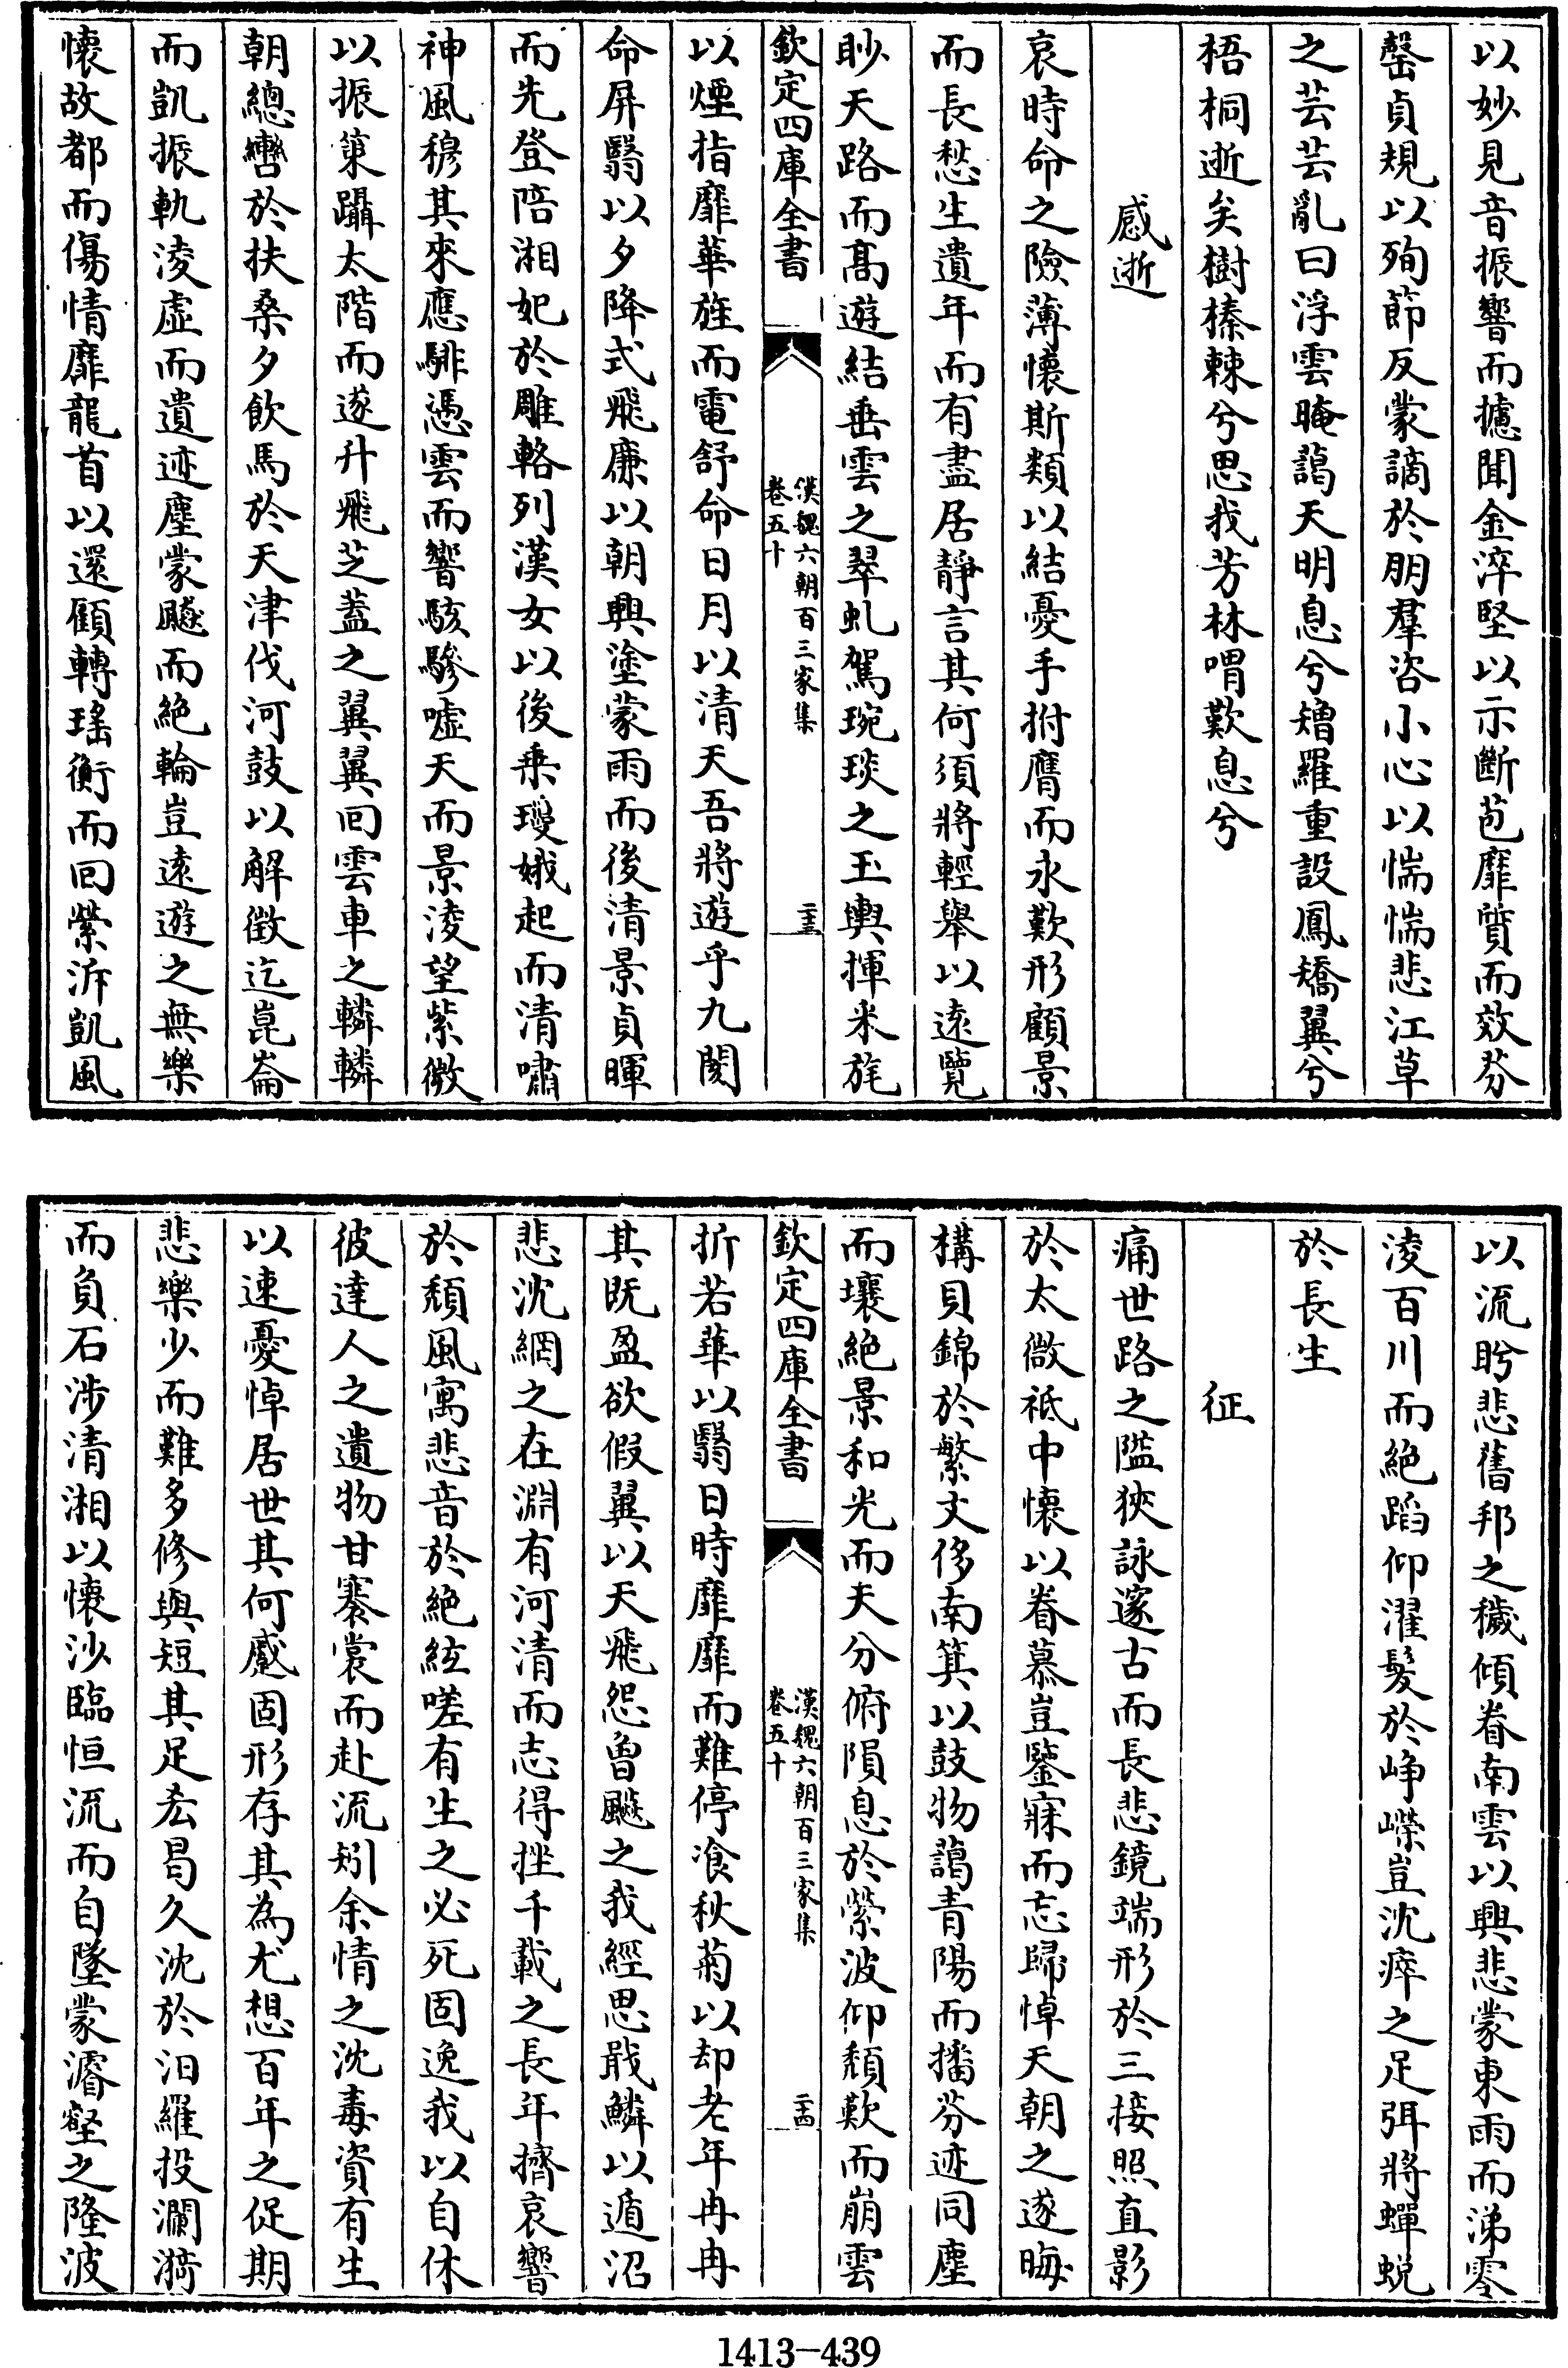 以妙見音振響而攄聞金淬堅以示斷苞靡質而效芬
罄貞規以殉節反蒙謫於朋羣咨小心以惴惴悲江草
之芸芸亂曰浮雲晻藹天明息兮矰羅重設鳳矯翼兮
梧桐逝矣樹榛棘兮思我芳林喟歎息兮
感逝
哀時命之險薄懷斯類以結憂手拊膺而永歎形顧景
而長愁生遺年而有盡居靜言其何須將輕舉以遠覽
眇天路而髙遊結垂雲之翠虬駕琬琰之玉輿揮米旄
欽定四庫全書
漢魏六朝百三家集
卷五十
二十三
以煙指靡華旌而電舒命日月以清天吾將遊乎九閡
命屏翳以夕降式飛廉以朝興塗蒙雨而後清景貞暉
而先登陪湘妃於雕輅列漢女以後乗瓊娥起而清嘯
神風穆其來應騑憑雲而響駭驂噓天而景淩望紫微
以振策躡太階而遂升飛芝蓋之翼翼囘雲車之轔轔
朝總轡於扶桑夕飲馬於天津伐河鼓以解徵迄崑崙
而凱振軌淩虛而遺迹塵蒙飇而絶輪豈遠遊之無樂
懷故都而傷情靡龍首以還顧轉瑤衡而囘縈泝凱風
以流盻悲舊邦之穢傾眷南雲以興悲蒙東雨而涕零
淩百川而絶蹈仰濯髮於崢嶸豈沈瘁之足弭將蟬蛻
於長生
征
痛世路之隘狹詠邃古而長悲鏡端形於三接照直影
於太微祗中懷以眷慕豈鑒寐而忘歸悼天朝之遂晦
構貝錦於繁文侈南箕以鼓物藹青陽而播芬迹同塵
而壤絶景和光而夫分俯隕息於縈波仰頽歎而崩雲
欽定四庫全書
漢魏六朝百三家集
卷五十
二十四
折若華以翳日時靡靡而難停飡秋菊以却老年冉冉
其既盈欲假翼以天飛怨曾飇之我經思戢鱗以遁沼
悲沈網之在淵有河清而志得挫千載之長年擠哀響
於頽風寓悲音於絶絃嗟有生之必死固逸我以自休
彼達人之遺物甘褰裳而赴流矧余情之沈毒資有生
以速憂悼居世其何慼固形存其為尤想百年之促期
悲樂少而難多修與短其足吝曷久沈於汨羅投瀾漪
而負石涉清湘以懷沙臨恒流而自墜蒙濬壑之隆波
1413-439